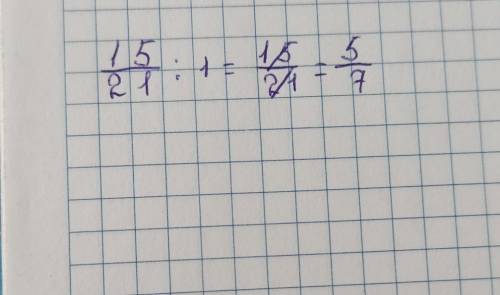 15/21 : 1 = 15/21 = 5/7